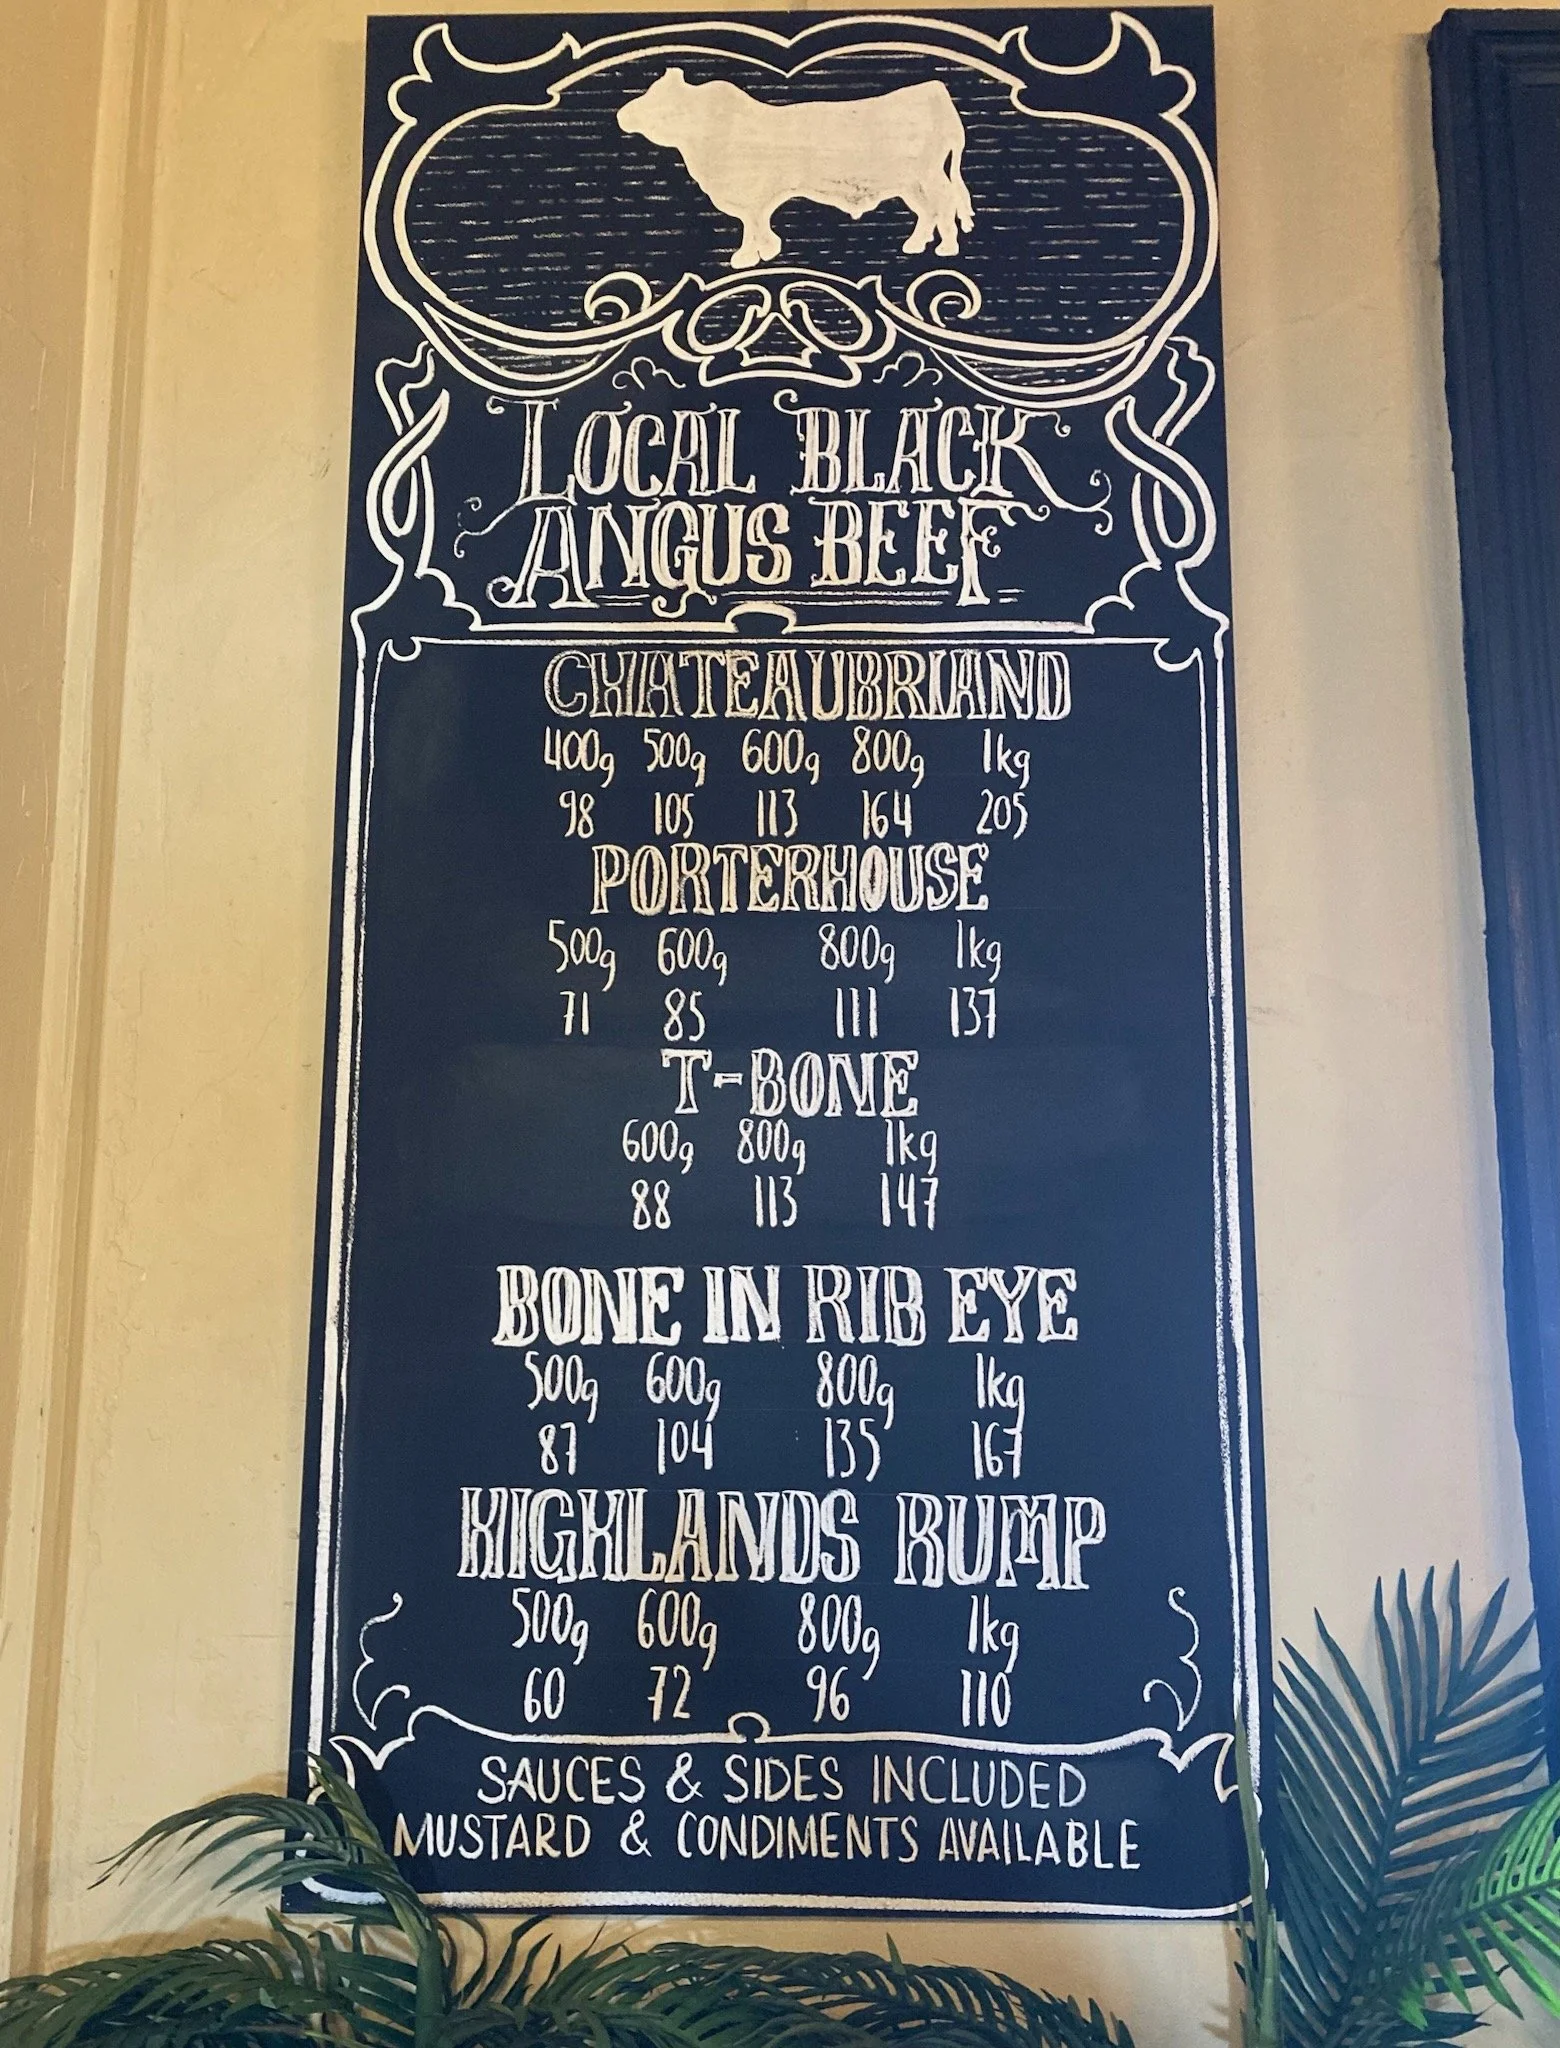 LOCAL BLACK
ANGUS BEEF
CHATEAUBRIAND
400g 500g 600g 800g 1kg
98 105 113 164 205
PORTERHOUSE
500g 600g 800g 1kg
71 85 111 137
T-BONE
600g 800g 1kg
88 113 147
BONE IN RIB EYE
500g 600g 800g 1kg
87 104 135 167
HIGHLANDS RUMP
500g 600g 800g 1kg
60 72 96 110
SAUCES & SIDES INCLUDED
MUSTARD & CONDIMENTS AVAILABLE